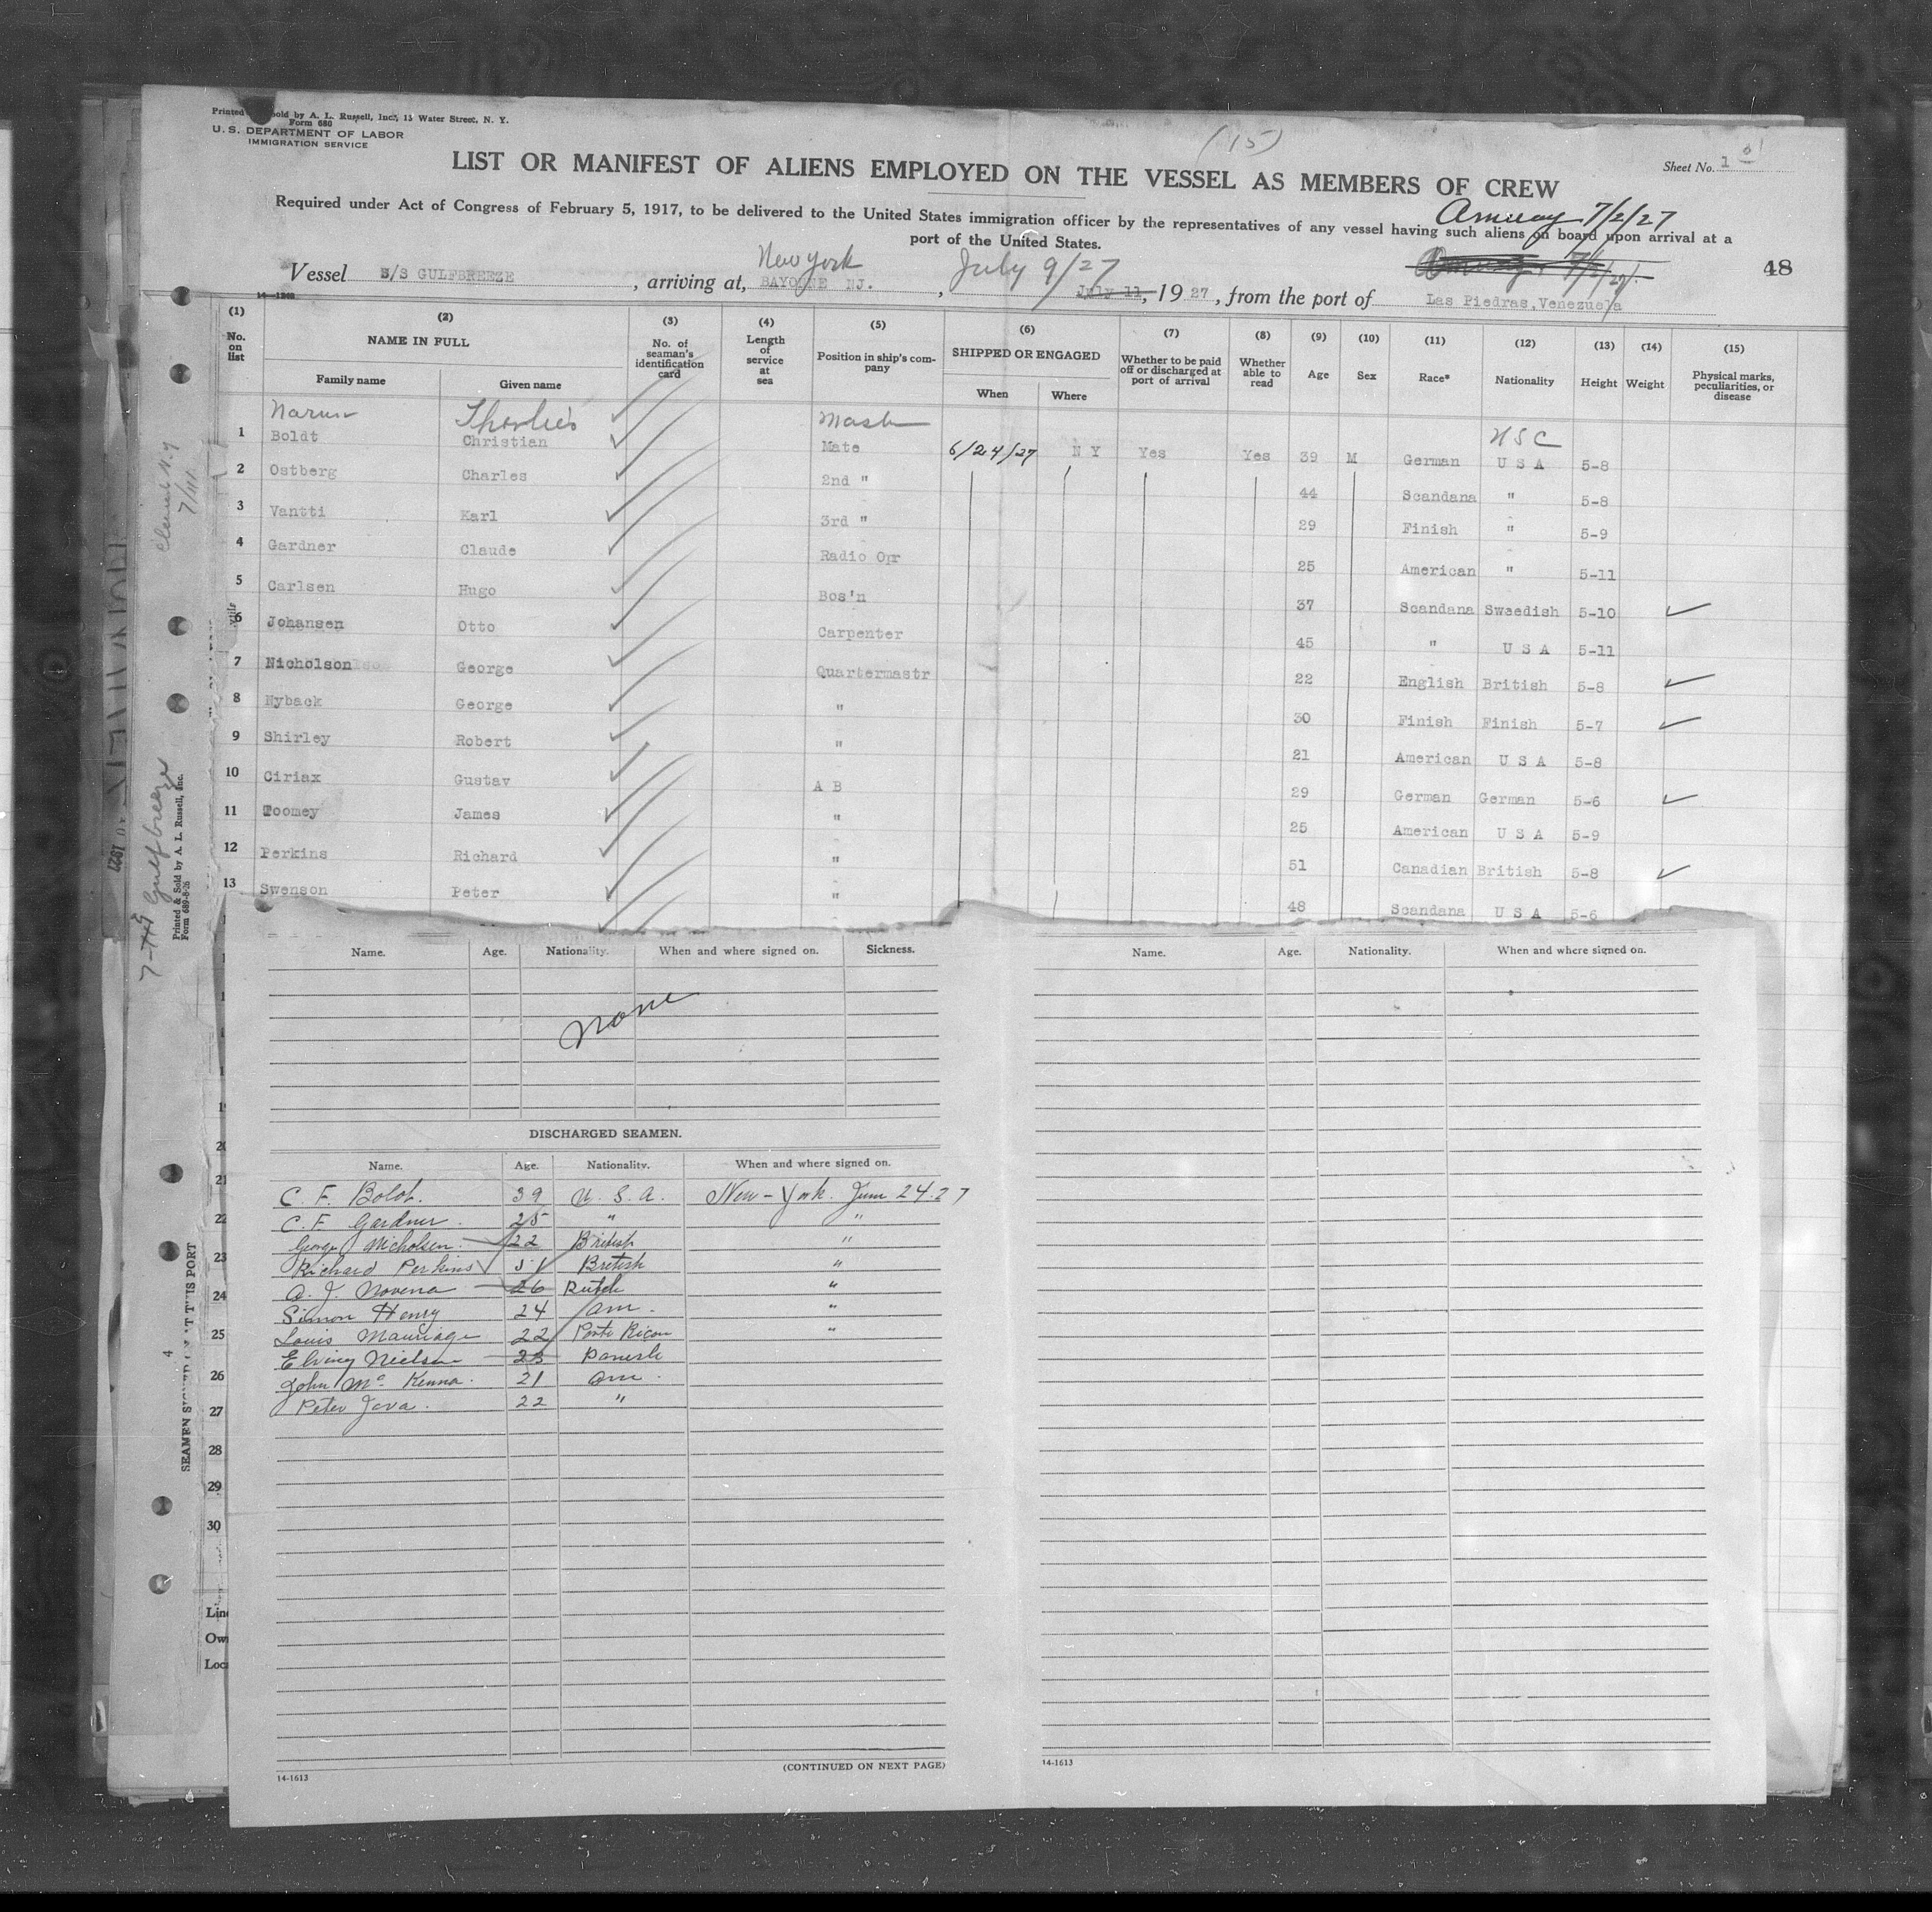 Printed & Sold by A. L. Russell, Inc., 15 Water Street, N. Y.
Form 680
U. S. DEPARTMENT OF LABOR
IMMIGRATION SERVICE
(15)
Sheet No. 1
LIST OR MANIFEST OF ALIENS EMPLOYED ON THE VESSEL AS MEMBERS OF CREW
7/2/27
Required under Act of Congress of February 5, 1917, to be delivered to the United States immigration officer by the representatives of any vessel having such aliens on board upon arrival at a
port of the United States.
New York July 9/27
48
Vessel S/S GULFBREEZE, arriving at, BAYONNE NJ., July 11, 1927, from the port of Las Piedras, Venezuela
(1) (2) (3) (4) (5) (6) (7) (8) (9) (10) (11) (12) (13) (14) (15)
No. on list NAME IN FULL No. of seaman's identification card Length of service at sea Position in ship's company SHIPPED OR ENGAGED Whether to be paid off or discharged at port of arrival Whether able to read Age Sex Race* Nationality Height Weight Physical marks, peculiarities, or disease
Family name Given name When Where
Master USC
1 Boldt Christian Mate 6/24/27 N Y Yes Yes 39 M German U S A 5-8
2 Ostberg Charles 2nd " 44 Scandana " 5-8
3 Vantti Karl 3rd " 29 Finish " 5-9
4 Gardner Claude Radio Opr 25 American " 5-11
5 Carlsen Hugo Bos'n 37 Scandana Swaedish 5-10
6 Johansen Otto Carpenter 45 " U S A 5-11
7 Nicholson George Quartermastr 22 English British 5-8
8 Nyback George " 30 Finish Finish 5-7
9 Shirley Robert " 21 American U S A 5-8
10 Ciriax Gustav A B 29 German German 5-6
11 Toomey James " 25 American U S A 5-9
12 Perkins Richard " 51 Canadian British 5-8
13 Swenson Peter " 48 Scandana U S A 5-6
Name. Age. Nationality. When and where signed on. Sickness.
Name. Age. Nationality. When and where signed on.
None
DISCHARGED SEAMEN.
Name. Age. Nationality. When and where signed on.
C. F. Boldt. 39 U. S. A. New-York. June 24-27
C. F. Gardner. 25 " "
George Nicholsen. 22 British "
Richard Perkins 51 British "
A. J. Novena 26 Dutch "
Simon Henry 24 Am. "
Louis Mauriage 22 Porto Rican "
Elving Nielsen 23 Danish
John McKenna. 21 Am.
Peter Jova. 22 "
20
21
22
23
24
25
26
27
28
29
30
(CONTINUED ON NEXT PAGE)
14-1613
14-1613
7/11
Gulfbreeze
Printed & Sold by A. L. Russell, Inc.
Form 689-8-26
4